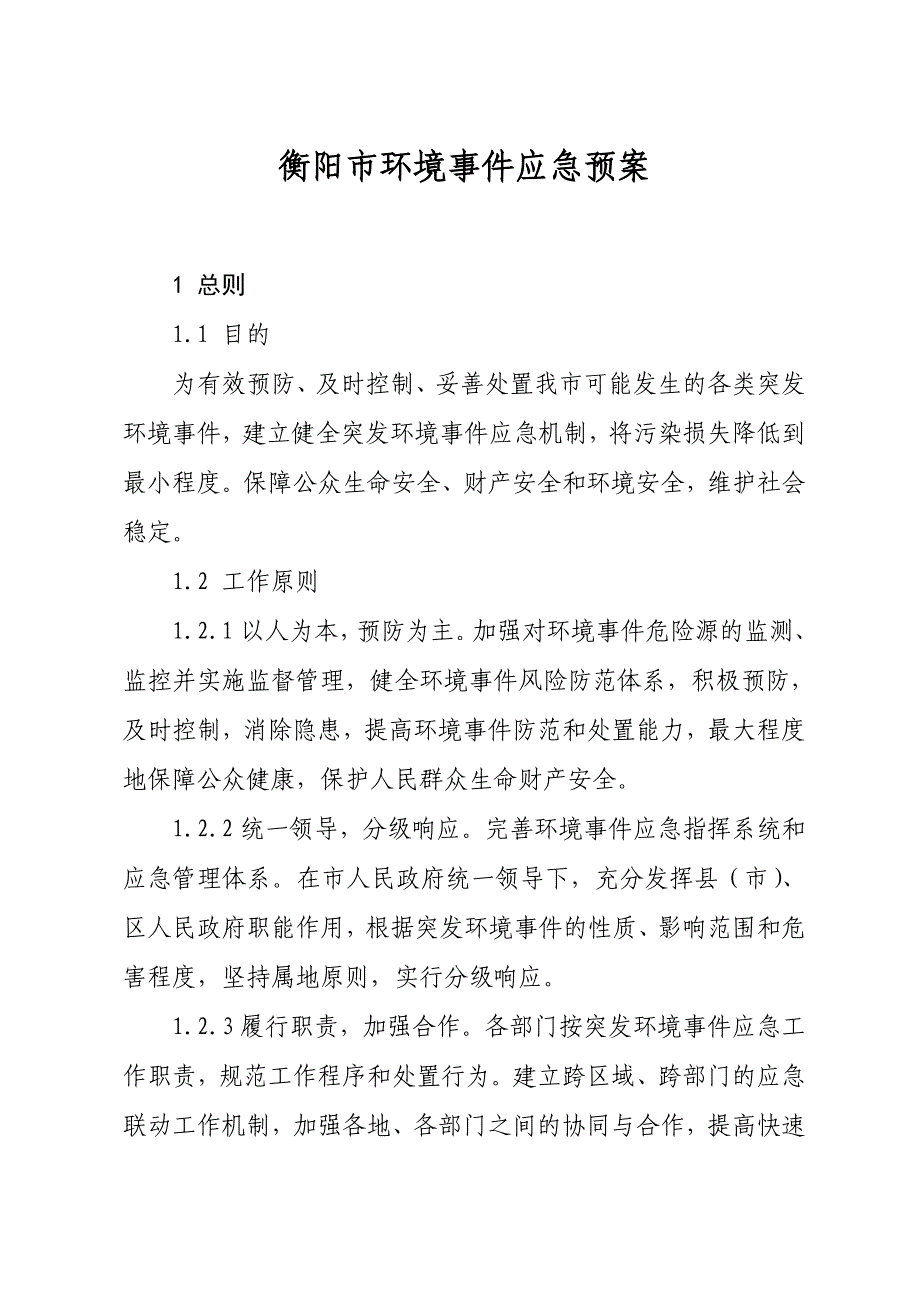 衡阳市环境事件应急预案
1 总则
1.1 目的
为有效预防、及时控制、妥善处置我市可能发生的各类突发
环境事件，建立健全突发环境事件应急机制，将污染损失降低到
最小程度。保障公众生命安全、财产安全和环境安全，维护社会
稳定。
1.2 工作原则
1.2.1 以人为本，预防为主。加强对环境事件危险源的监测、
监控并实施监督管理，健全环境事件风险防范体系，积极预防，
及时控制，消除隐患，提高环境事件防范和处置能力，最大程度
地保障公众健康，保护人民群众生命财产安全。
1.2.2 统一领导，分级响应。完善环境事件应急指挥系统和
应急管理体系。在市人民政府统一领导下，充分发挥县（市）、
区人民政府职能作用，根据突发环境事件的性质、影响范围和危
害程度，坚持属地原则，实行分级响应。
1.2.3 履行职责，加强合作。各部门按突发环境事件应急工
作职责，规范工作程序和处置行为。建立跨区域、跨部门的应急
联动工作机制，加强各地、各部门之间的协同与合作，提高快速